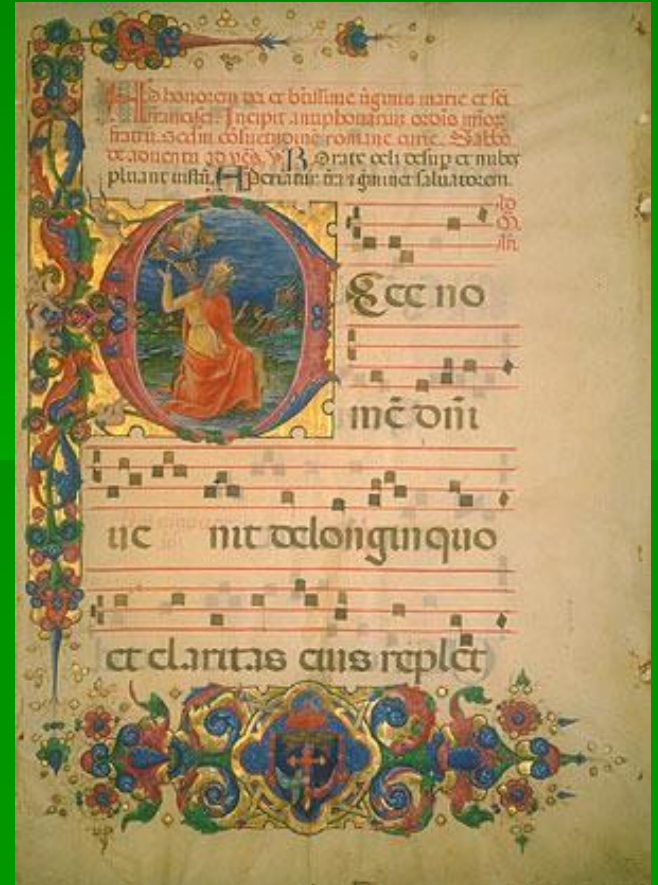 Ad honorem dei et btissime ũginis marie et sci
francisci. Incipit antiphonariũ ordĩs mĩor
fratrũ. scdm cõsuetudinẽ romane curie. Sabbo
de aduentu ad ṽes. ℣ Rorate celi desup et nubes
pluant iustũ. Aperiatur
Ecce no
mẽ dñi
ue nit delonginquo
et claritas eius replet